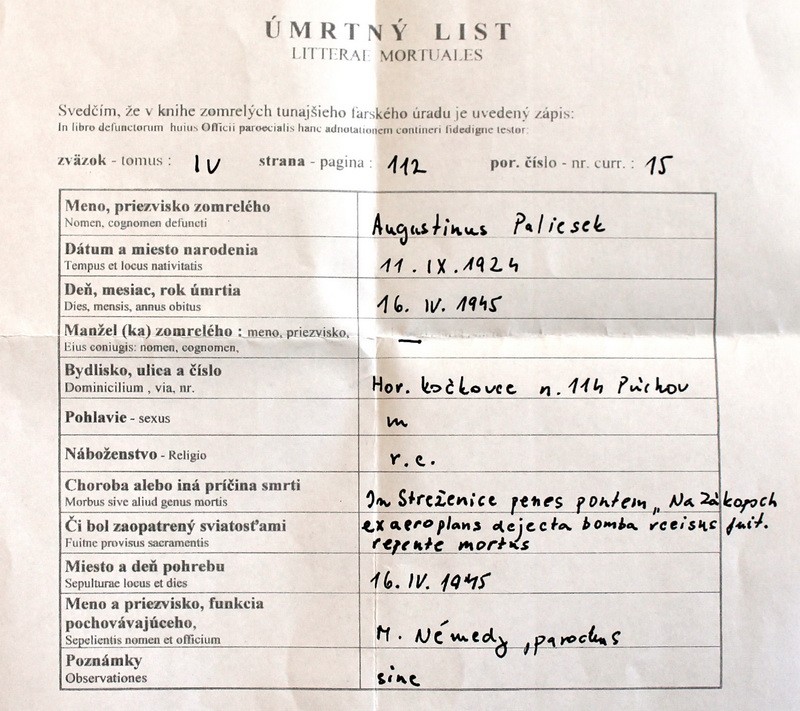 ÚMRTNÝ LIST
LITTERAE MORTUALES
Svedčím, že v knihe zomrelých tunajšieho farského úradu je uvedený zápis:
In libro defunctorum huius Officii paroecialis hanc adnotationem contineri fidedigne testor:
zväzok - tomus : IV strana - pagina : 112 por. číslo - nr. curr. : 15
Meno, priezvisko zomrelého
Nomen, cognomen defuncti
Augustinus Paliesek
Dátum a miesto narodenia
Tempus et locus nativitatis
11. IX. 1924
Deň, mesiac, rok úmrtia
Dies, mensis, annus obitus
16. IV. 1945
Manžel (ka) zomrelého : meno, priezvisko,
Eius coniugis: nomen, cognomen,
—
Bydlisko, ulica a číslo
Dominicilium , via, nr.
Hor. kočkovce n. 114 Púchov
Pohlavie - sexus
m
Náboženstvo - Religio
r. c.
Choroba alebo iná príčina smrti
Morbus sive aliud genus mortis
In Streženice penes pontem „Na Zákopoch
Či bol zaopatrený sviatosťami
Fuitne provisus sacramentis
ex aeroplans dejecta bomba fuit.
repente mortus
Miesto a deň pohrebu
Sepulturae locus et dies
16. IV. 1945
Meno a priezvisko, funkcia
pochovávajúceho,
Sepelientis nomen et officium
M. Némedy, parochus
Poznámky
Observationes
sine